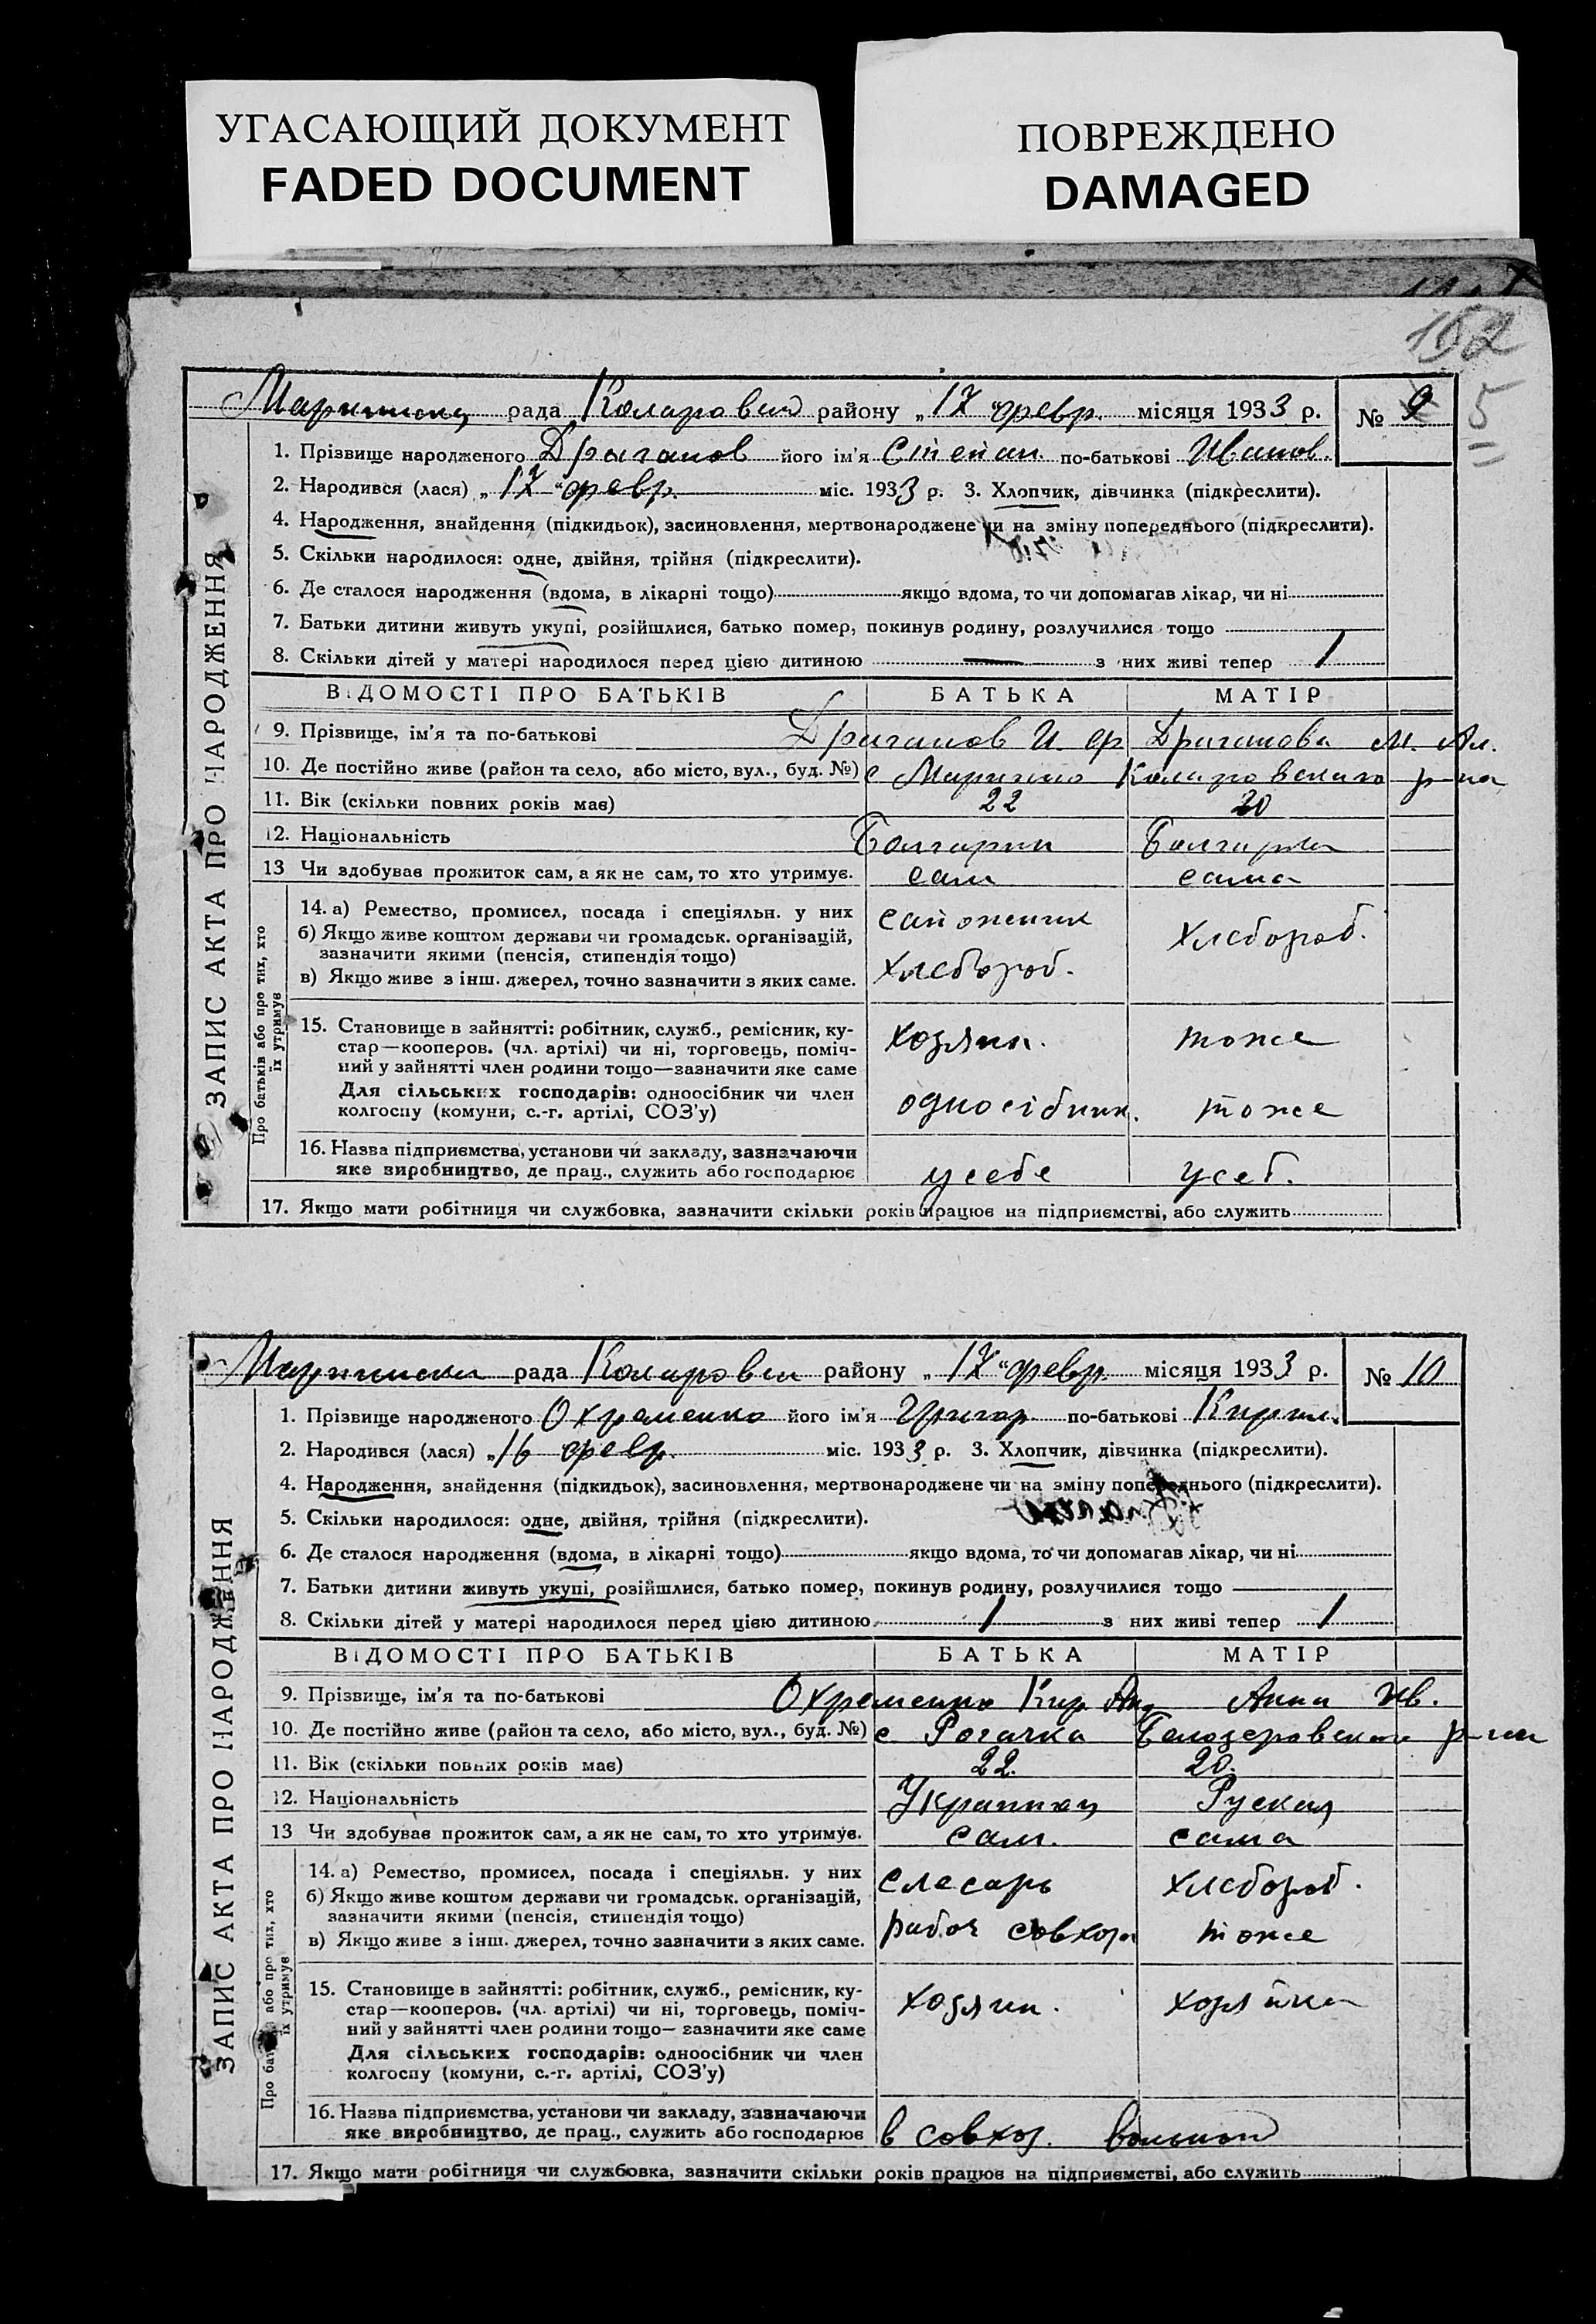 УГАСАЮЩИЙ ДОКУМЕНТ
FADED DOCUMENT
ПОВРЕЖДЕНО
DAMAGED
152
5
рада Коларовск району „17 "февр. місяця 1933 р. № 9
1. Прізвище народженого Драганов його ім'я Степан. по-батькові Иванов.
2. Народився (лася) „17 "февр. міс. 1933 р. 3. Хлопчик, дівчинка (підкреслити).
4. Народження, знайдення (підкидьок), засиновлення, мертвонароджене чи на зміну попереднього (підкреслити).
5. Скільки народилося: одне, двійня, трійня (підкреслити).
6. Де сталося народження (вдома, в лікарні тощо) якщо вдома, то чи допомагав лікар, чи ні
7. Батьки дитини живуть укупі, розійшлися, батько помер, покинув родину, розлучилися тощо
8. Скільки дітей у матері народилося перед цією дитиною — з них живі тепер 1
ВІДОМОСТІ ПРО БАТЬКІВ БАТЬКА МАТІР
9. Прізвище, ім'я та по-батькові Драганов И. Ф. Драганова М. Ал.
10. Де постійно живе (район та село, або місто, вул., буд. №) с Коларовского р-на
11. Вік (скільки повних років має) 22 20
12. Національність Болгарин Болгарка
13 Чи здобував прожиток сам, а як не сам, то хто утримує. сам сама
14. а) Ремество, промисел, посада і спеціяльн. у них сапожник хлебороб.
б) Якщо живе коштом держави чи громадськ. організацій,
зазначити якими (пенсія, стипендія тощо)
в) Якщо живе з інш. джерел, точно зазначити з яких саме. хлебороб.
15. Становище в зайнятті: робітник, служб., ремісник, ку-
стар—кооперов. (чл. артілі) чи ні, торговець, поміч- хозяин. тоже
ний у зайнятті член родини тощо—зазначити яке саме
Для сільських господарів: одноосібник чи член
колгоспу (комуни, с.-г. артілі, СОЗ'у) одноосібник. тоже
16. Назва підприємства, установи чи закладу, зазначаючи
яке виробництво, де прац., служить або господарює у себе у себ.
17. Якщо мати робітниця чи службовка, зазначити скільки років працює на підприємстві, або служить
ЗАПИС АКТА ПРО НАРОДЖЕННЯ
Про батьків або про тих, хто
їх утримує
рада Коларовск району „17 "февр. місяця 1933 р. № 10
1. Прізвище народженого Охременко його ім'я Григор по-батькові Кирил.
2. Народився (лася) „16 февр. міс. 1933 р. 3. Хлопчик, дівчинка (підкреслити).
4. Народження, знайдення (підкидьок), засиновлення, мертвонароджене чи на зміну попереднього (підкреслити).
5. Скільки народилося: одне, двійня, трійня (підкреслити).
6. Де сталося народження (вдома, в лікарні тощо) якщо вдома, то чи допомагав лікар, чи ні
7. Батьки дитини живуть укупі, розійшлися, батько помер, покинув родину, розлучилися тощо
8. Скільки дітей у матері народилося перед цією дитиною 1 з них живі тепер 1
ВІДОМОСТІ ПРО БАТЬКІВ БАТЬКА МАТІР
9. Прізвище, ім'я та по-батькові Охременко Кир. Анд Анна Ив.
10. Де постійно живе (район та село, або місто, вул., буд. №) с Рогачка Белозеровского р-на
11. Вік (скільки повних років має) 22. 20.
12. Національність Украинец Руская
13 Чи здобував прожиток сам, а як не сам, то хто утримує. сам. сама
14. а) Ремество, промисел, посада і спеціяльн. у них слесарь хлебороб.
б) Якщо живе коштом держави чи громадськ. організацій,
зазначити якими (пенсія, стипендія тощо)
в) Якщо живе з інш. джерел, точно зазначити з яких саме. рабоч совхоза тоже
15. Становище в зайнятті: робітник, служб., ремісник, ку-
стар—кооперов. (чл. артілі) чи ні, торговець, поміч- хозяин. хозяйка
ний у зайнятті член родини тощо—зазначити яке саме
Для сільських господарів: одноосібник чи член
колгоспу (комуни, с.-г. артілі, СОЗ'у)
16. Назва підприємства, установи чи закладу, зазначаючи
яке виробництво, де прац., служить або господарює в совхоз.
17. Якщо мати робітниця чи службовка, зазначити скільки років працює на підприємстві, або служить
ЗАПИС АКТА ПРО НАРОДЖЕННЯ
Про батьків або про тих, хто
їх утримує